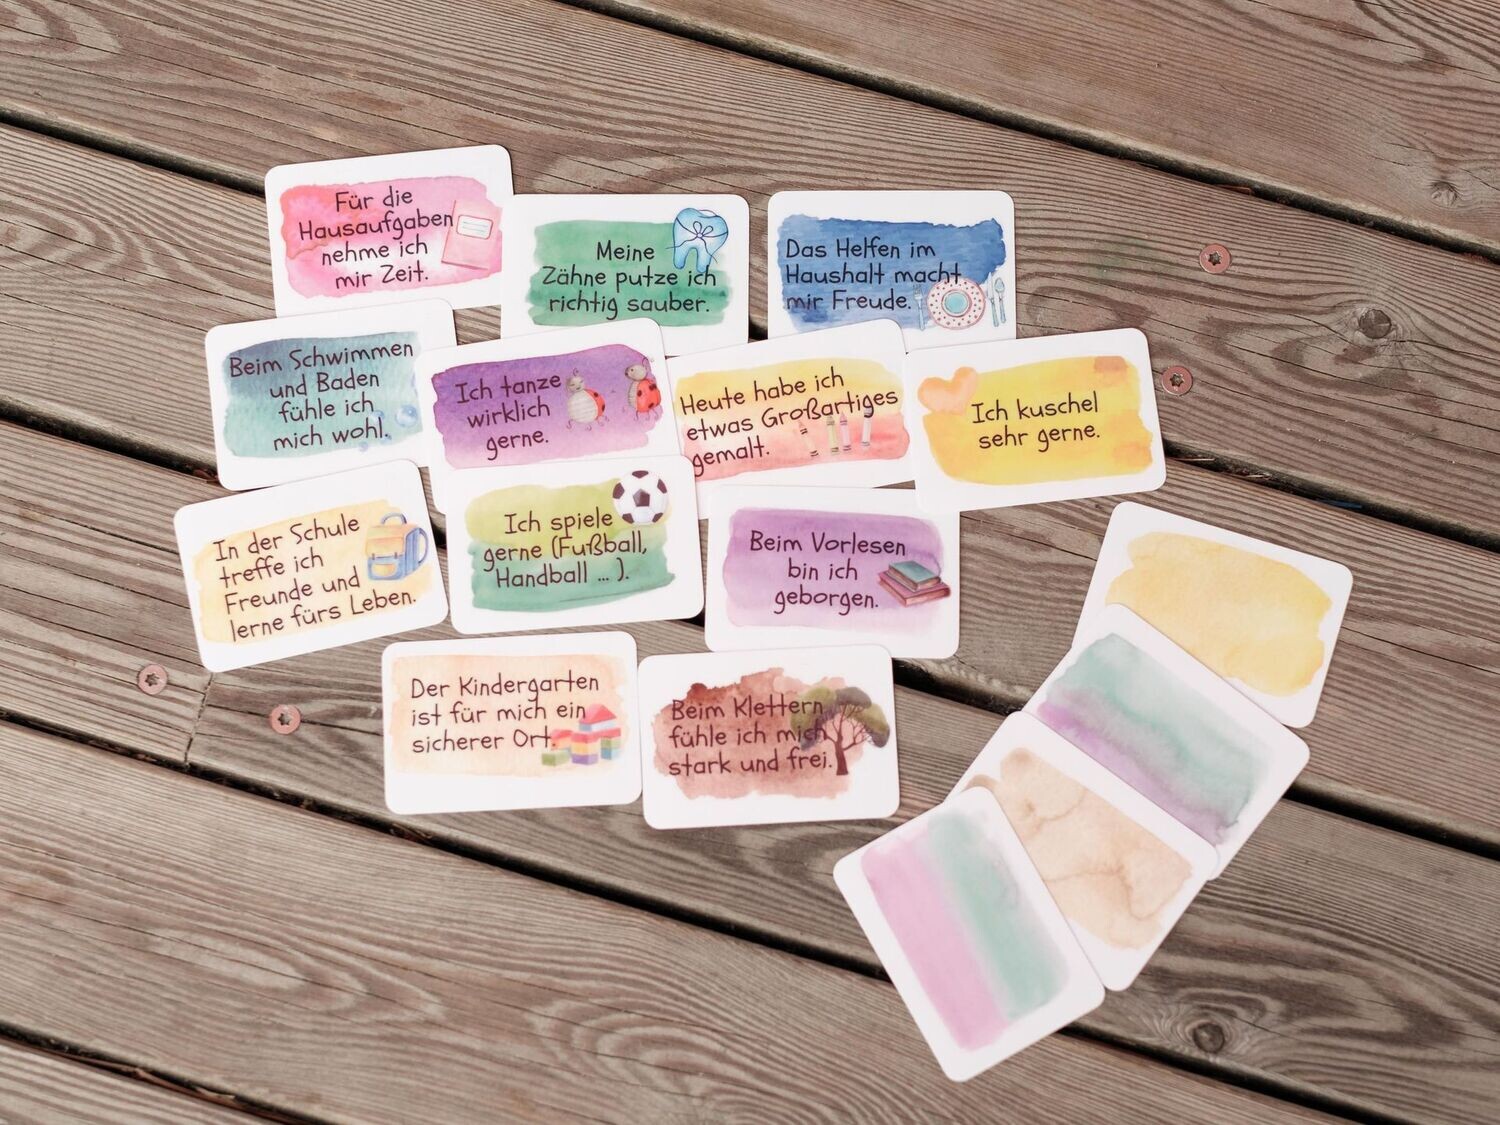 Für die
Hausaufgaben
nehme ich
mir Zeit.
Meine
Zähne putze ich
richtig sauber.
Das Helfen im
Haushalt macht
mir Freude.
Beim Schwimmen
und Baden
fühle ich
mich wohl.
Ich tanze
wirklich
gerne.
Heute habe ich
etwas Großartiges
gemalt.
Ich kuschel
sehr gerne.
In der Schule
treffe ich
Freunde und
lerne fürs Leben.
Ich spiele
gerne (Fußball,
Handball ... ).
Beim Vorlesen
bin ich
geborgen.
Der Kindergarten
ist für mich ein
sicherer Ort.
Beim Klettern
fühle ich mich
stark und frei.